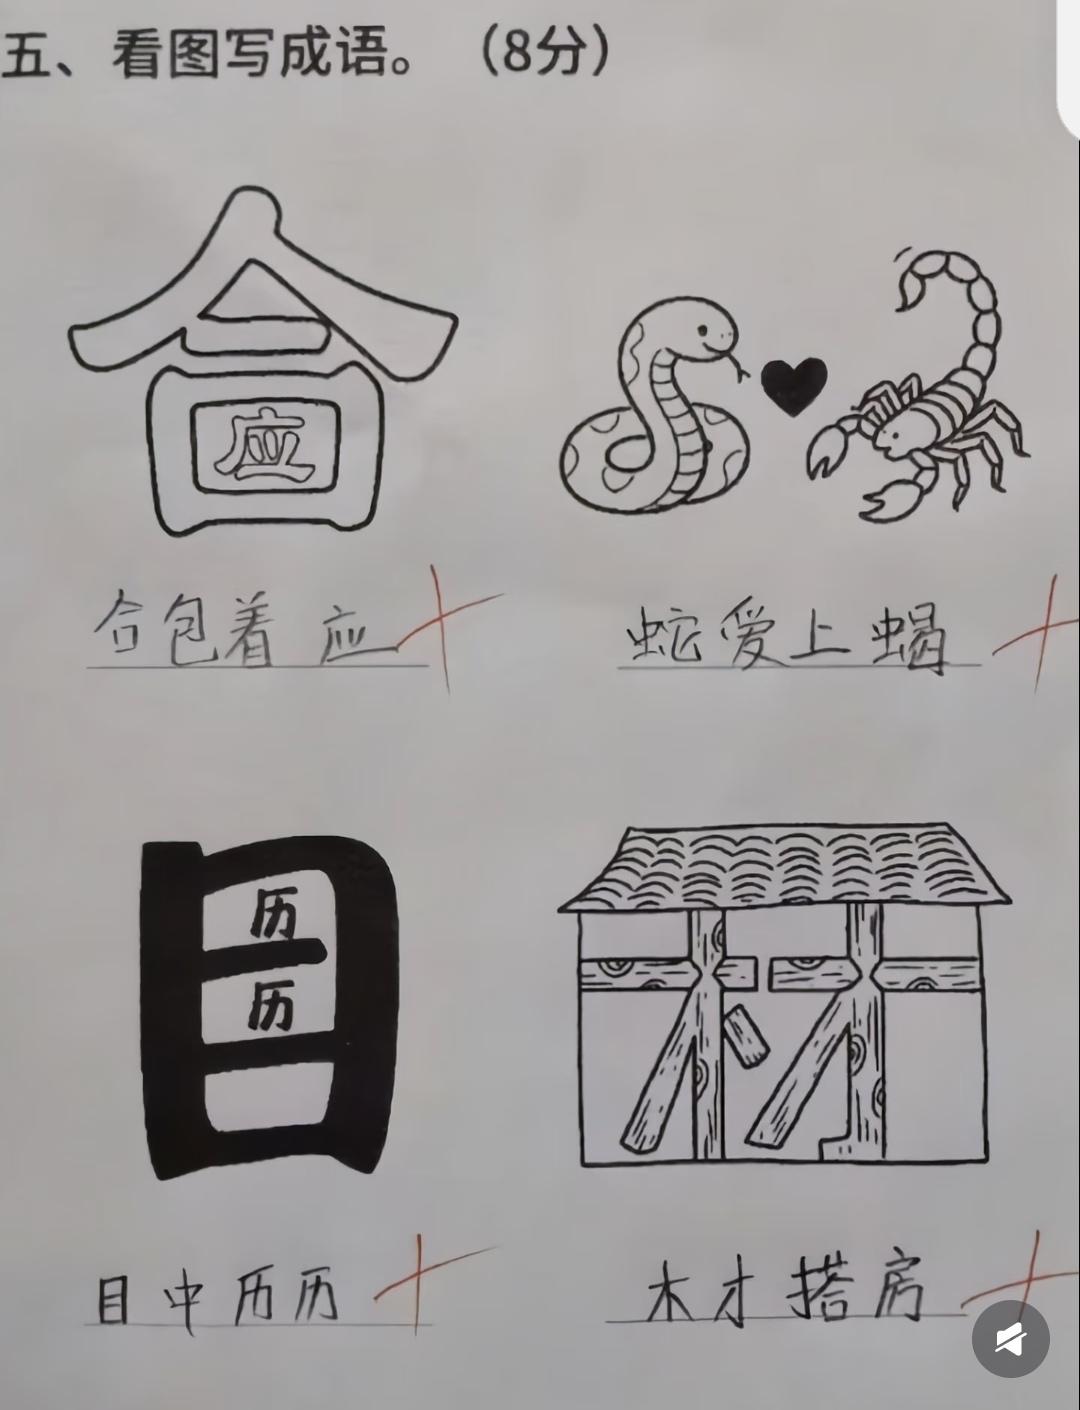 五、看图写成语。（8分）
合
应
合包着应
蛇爱上蝎
目
历
历
目中历历
木才搭房